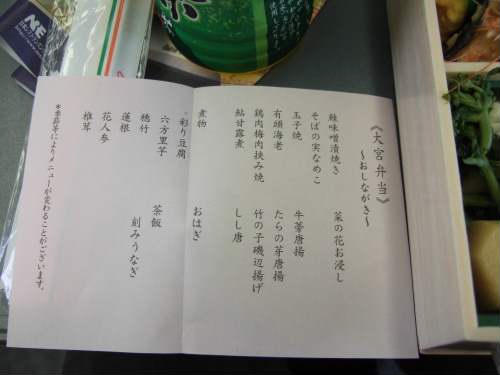 《大宮弁当》
～おしながき～
鰆味噌漬焼き
そばの実なめこ
玉子焼
有頭海老
鶏肉梅肉挟み焼
鮎甘露煮
煮物
・彩り豆腐
六方里芋
穂竹
蓮根
花人参
椎茸
菜の花お浸し
牛蒡唐揚
たらの芽唐揚
竹の子磯辺揚げ
しし唐
おはぎ
茶飯
刻みうなぎ
*季節等によりメニューが変わることがございます。
茶
NE